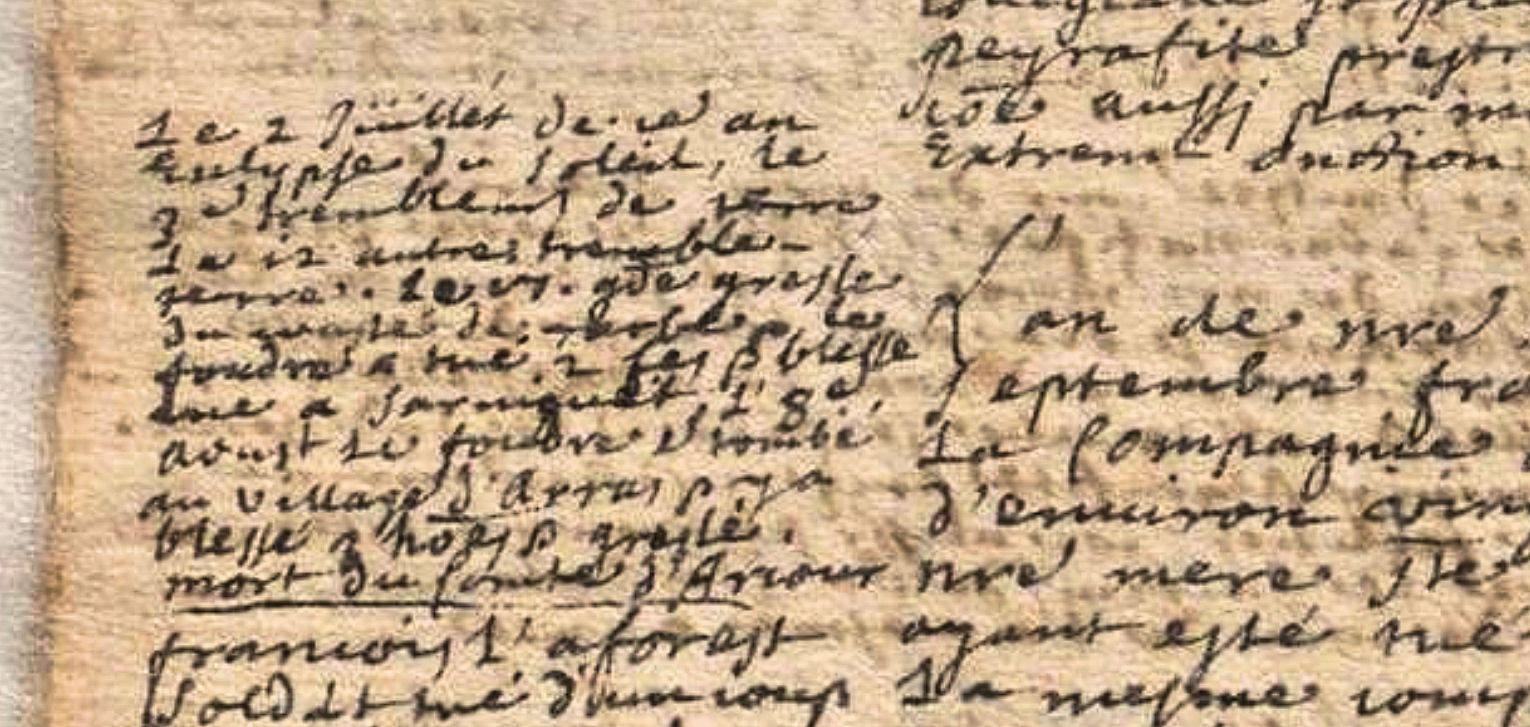 Le 2 Juillet de ce an
Eclypse du soleil, le
3e tremblemt de terre
Le 12 autre tremble-
terre. Le 17. gde gresle
du costé de le
foudre a tué 2 fes & blessé
une a Sarniguet L 8e
aoust le foudre e tombé
au village d'Arras & y a
blessé 2 hoes & greslé.
mort du Comte d'Arioux
francois L'aforest
sold et tué d'un coup
peyrafite prestr
cõe aussi par m
Extreme onction
an de nre
septembre fra
La Compagnie
d'enuiron vin
nre mere ste
ayant esté tué
La mesme comp